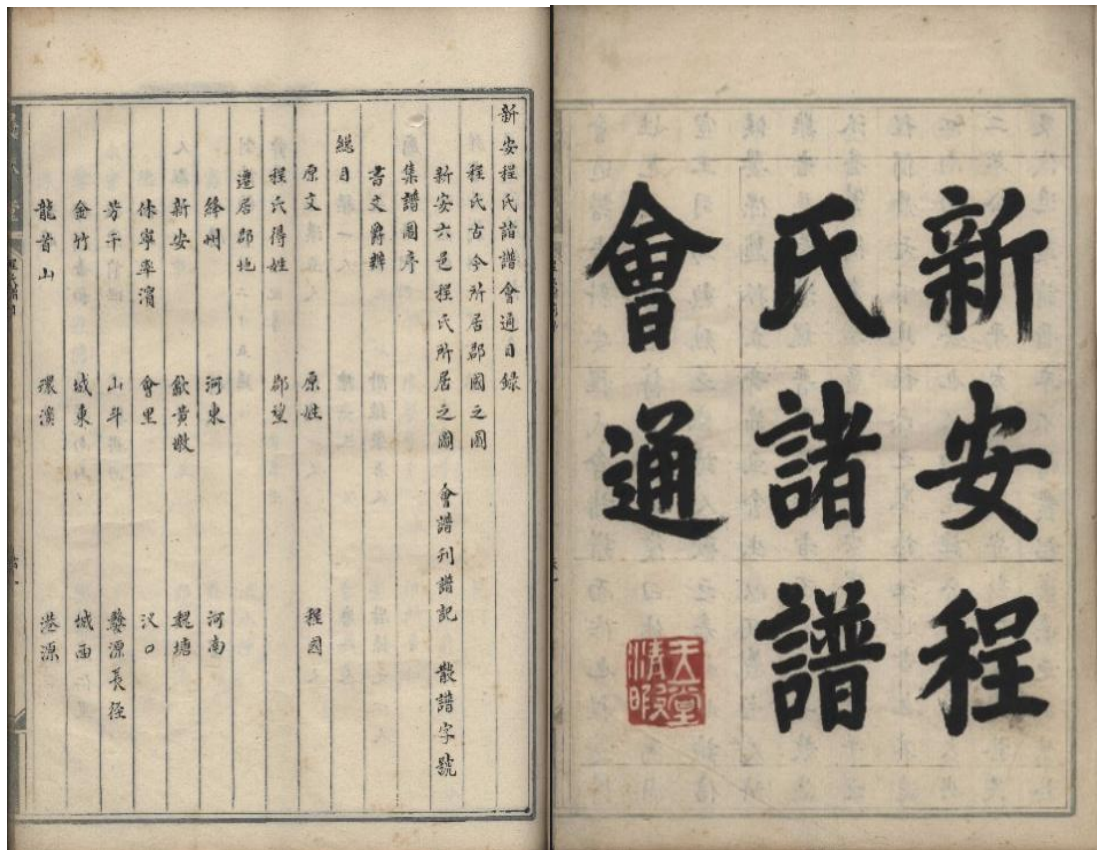 新安程
氏諸譜
會通
天堂
清暇
新安程氏諸譜會通目錄
程氏古今所居郡國之圖
新安六邑程氏所居之圖 會譜刋譜記 散譜字號
集譜圖序
書文爵辨
總目
原文 原姓 程國
程氏得姓 郡望
遷居郡地
絳州 河東 河南
新安 歙黃墩 槐塘
休寧率濱 會里 汊口
芳干 山斗 婺源長徑
金竹 城東 城西
龍首山 環溪 港源